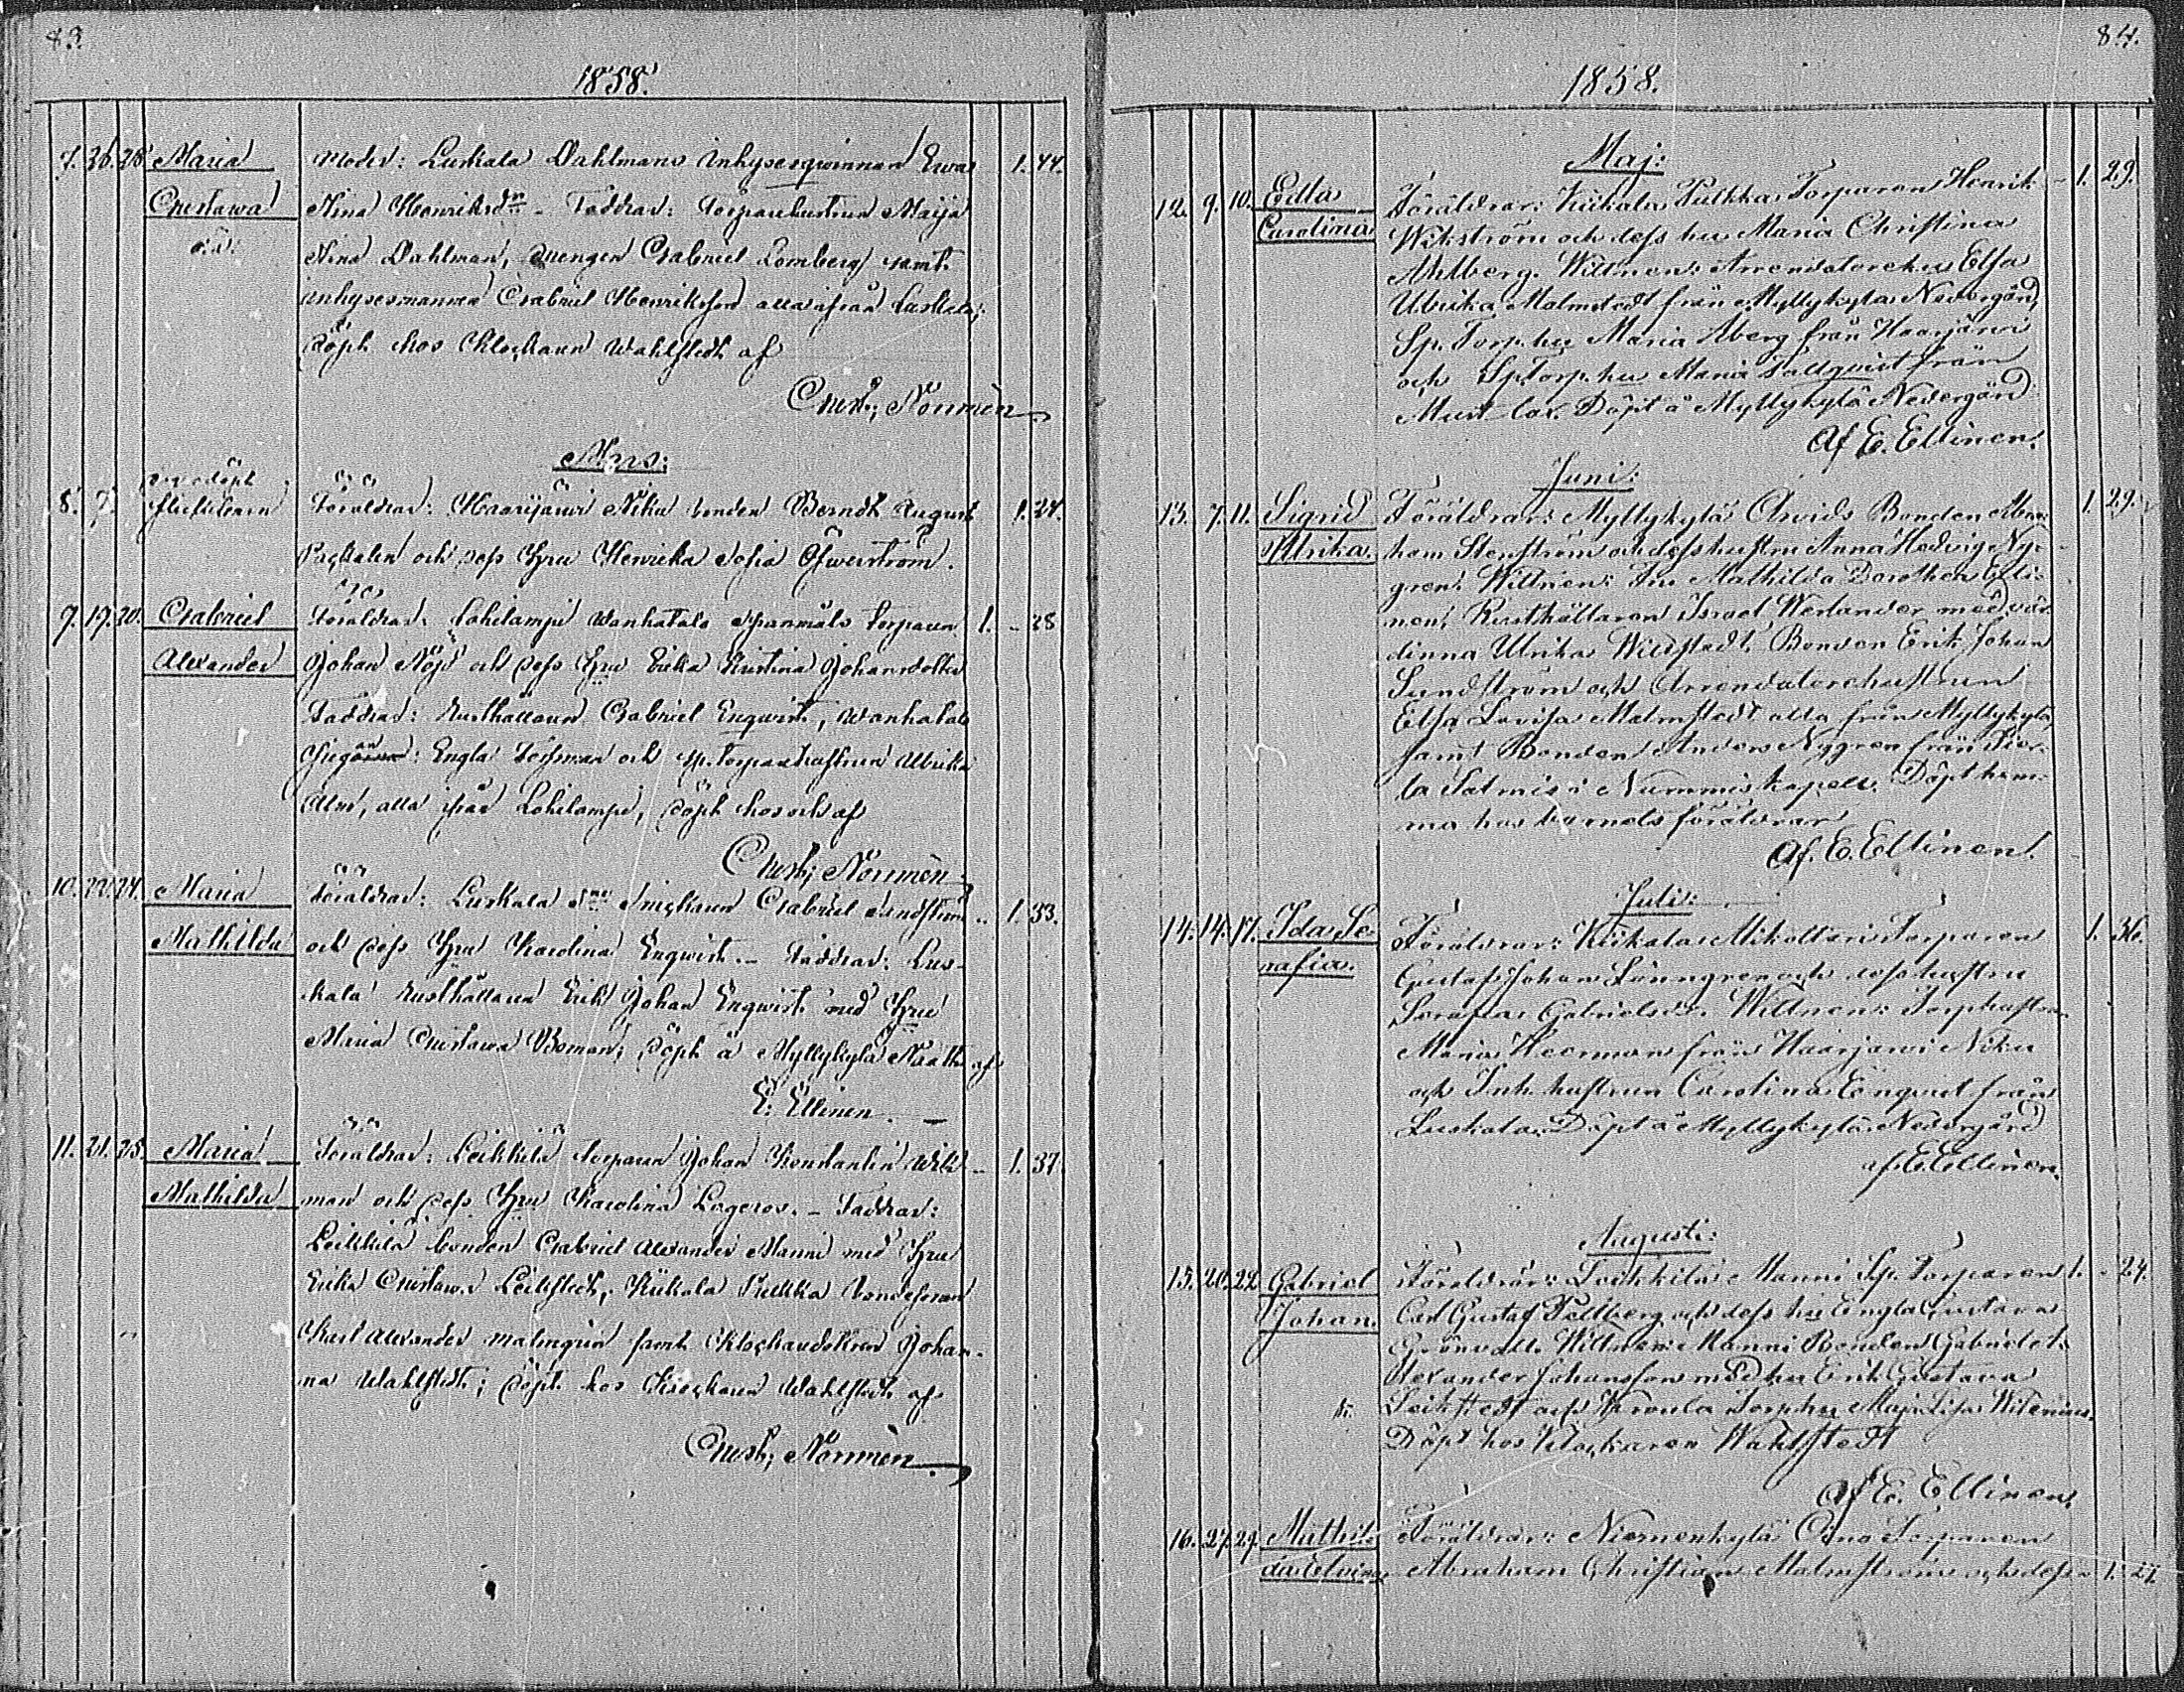 83.
1858.
7. 26. 28. Maria Moder: Luskala Dahlmans Inhysesqwinnan Ewa 1. 44.
Gustawa Nina Henriksdr - Faddrar: Torparehustrun Maija
o.ä. Nina Dahlman, drengen Gabriel Lomberg samt
inhysesmannen Gabriel Henriksson alla ifrån Luskala;
döpt hos Klockaren Wahlstedt af
Gust; Norrmén
Mars:
8. 7. odöpt flickebarn Föräldrar: Haarijärwi Niku bonden Berndt August 1. 24.
och dess Hru Henrika Sofia Öfwerström.
9. 19. 20. Gabriel Föräldrar: Lohilampi Wanhatalo Spanmåls torparen 1. - 28
Alexander Johan Nöjd och dess Hru Erika Kristina Johansdotter
Faddrar: Rusthållaren Gabriel Enqwist, Wanhatalo
Pigan: Engla och Sp. Torparehustrun Ulrika
Alm, alla ifrån Lohilampi, döpt hos och af
Gust; Norrmén
10. 22. 24. Maria Föräldrar: Luskala Snickaren Gabriel Sundström 1. 33.
Mathilda och dess Hru Karolina Enqwist. - Faddrar: Lus-
kala Rusthållaren Erik Johan Enqwist med Hru
Maria Gustawa Boman; döpt å Myllykylä af
E: Ellinen
11. 21. 25. Maria Föräldrar: Leikkilä torparen Johan Konstantin Wik- 1. 37.
Mathilda man och dess Hru Karolina Lageros. - Faddrar:
Leikkilä bonden Gabriel Alexander Manni med Hru
Erika Gustawa Leikstedt, Kiikala Pulkka bondesonen
Karl Alexander Malmgrén samt Klockaredottren Johan-
na Wahlstedt; döpt hos Klockaren Wahlstedt af
Gust; Norrmén
84.
1858.
Maj:
12. 9. 10. Edla Föräldrar: Kiikala Pulkka Torparen Henrik - 1. 29.
Carolina Wikström och dess hu Maria Christina
Ahlberg. Wittnen: Arrendatorehu Elsa
Ulrika Malmstedt från Myllykylä Nedergård,
Sp. Torp. hu Maria Åberg från Haarjärwi
och Sp Torp. hu Maria Tallqvist från
Döpt å Myllykylä Nedergård
Af E. Ellinen.
Juni:
13. 7. 11. Sigrid Föräldrar: Myllykylä Arvids Bonden Abra- 1. 29.
Ulrika. ham Stenström och dess hustru Anna Hedvig Ny-
gren. Wittnen: Fru Mathilda Dorothea Elli-
nen, Rusthållaren Israel Werlander med vär-
dinna Ulrika Willstedt, Bonden Erik Johan
Sundström och Arrendatorehustrun
Elsa Lovisa Malmstedt alla från Myllykylä,
samt Bonden Anders Nygren från Pier-
la Salmis i Nummis kapell. Döpt hem-
ma hos barnets föräldrar
Af. E. Ellinen.
Juli:
14. 14. 17. Ida Se- Föräldrar: Kiikala Mikolteri Torparen 1. 36.
rafia. Gustaf Johan Lönngren och dess hustru
Serafia Gabrielsdr. Wittnen: Torphustru
Maria Heerman från Haarjärwi Niku
och Inh. hustrun Carolina Enqvist från
Luskala. Döpt å Myllykylä Nedergård
af E. Ellinen.
Augusti:
15. 20. 22. Gabriel Föräldrar: Leikkilä Manni Sp. Torparen 1. - 24.
Johan. Carl Gustaf Fellberg och dess hu Engla Gustava
Grönvall. Wittnen: Manni Bonden Gabriel
Alexander Johansson med hu Erik Gustava
Leikstedt och Torphu Maja Lisa Witenius.
Döpt hos Klockaren Wahlstedt
Af E. Ellinen.
16. 27. 29. Mathil- Föräldrar: Niemenkylä Torparen
da Elvina Abraham Christian Malmström och dess 1. 27.